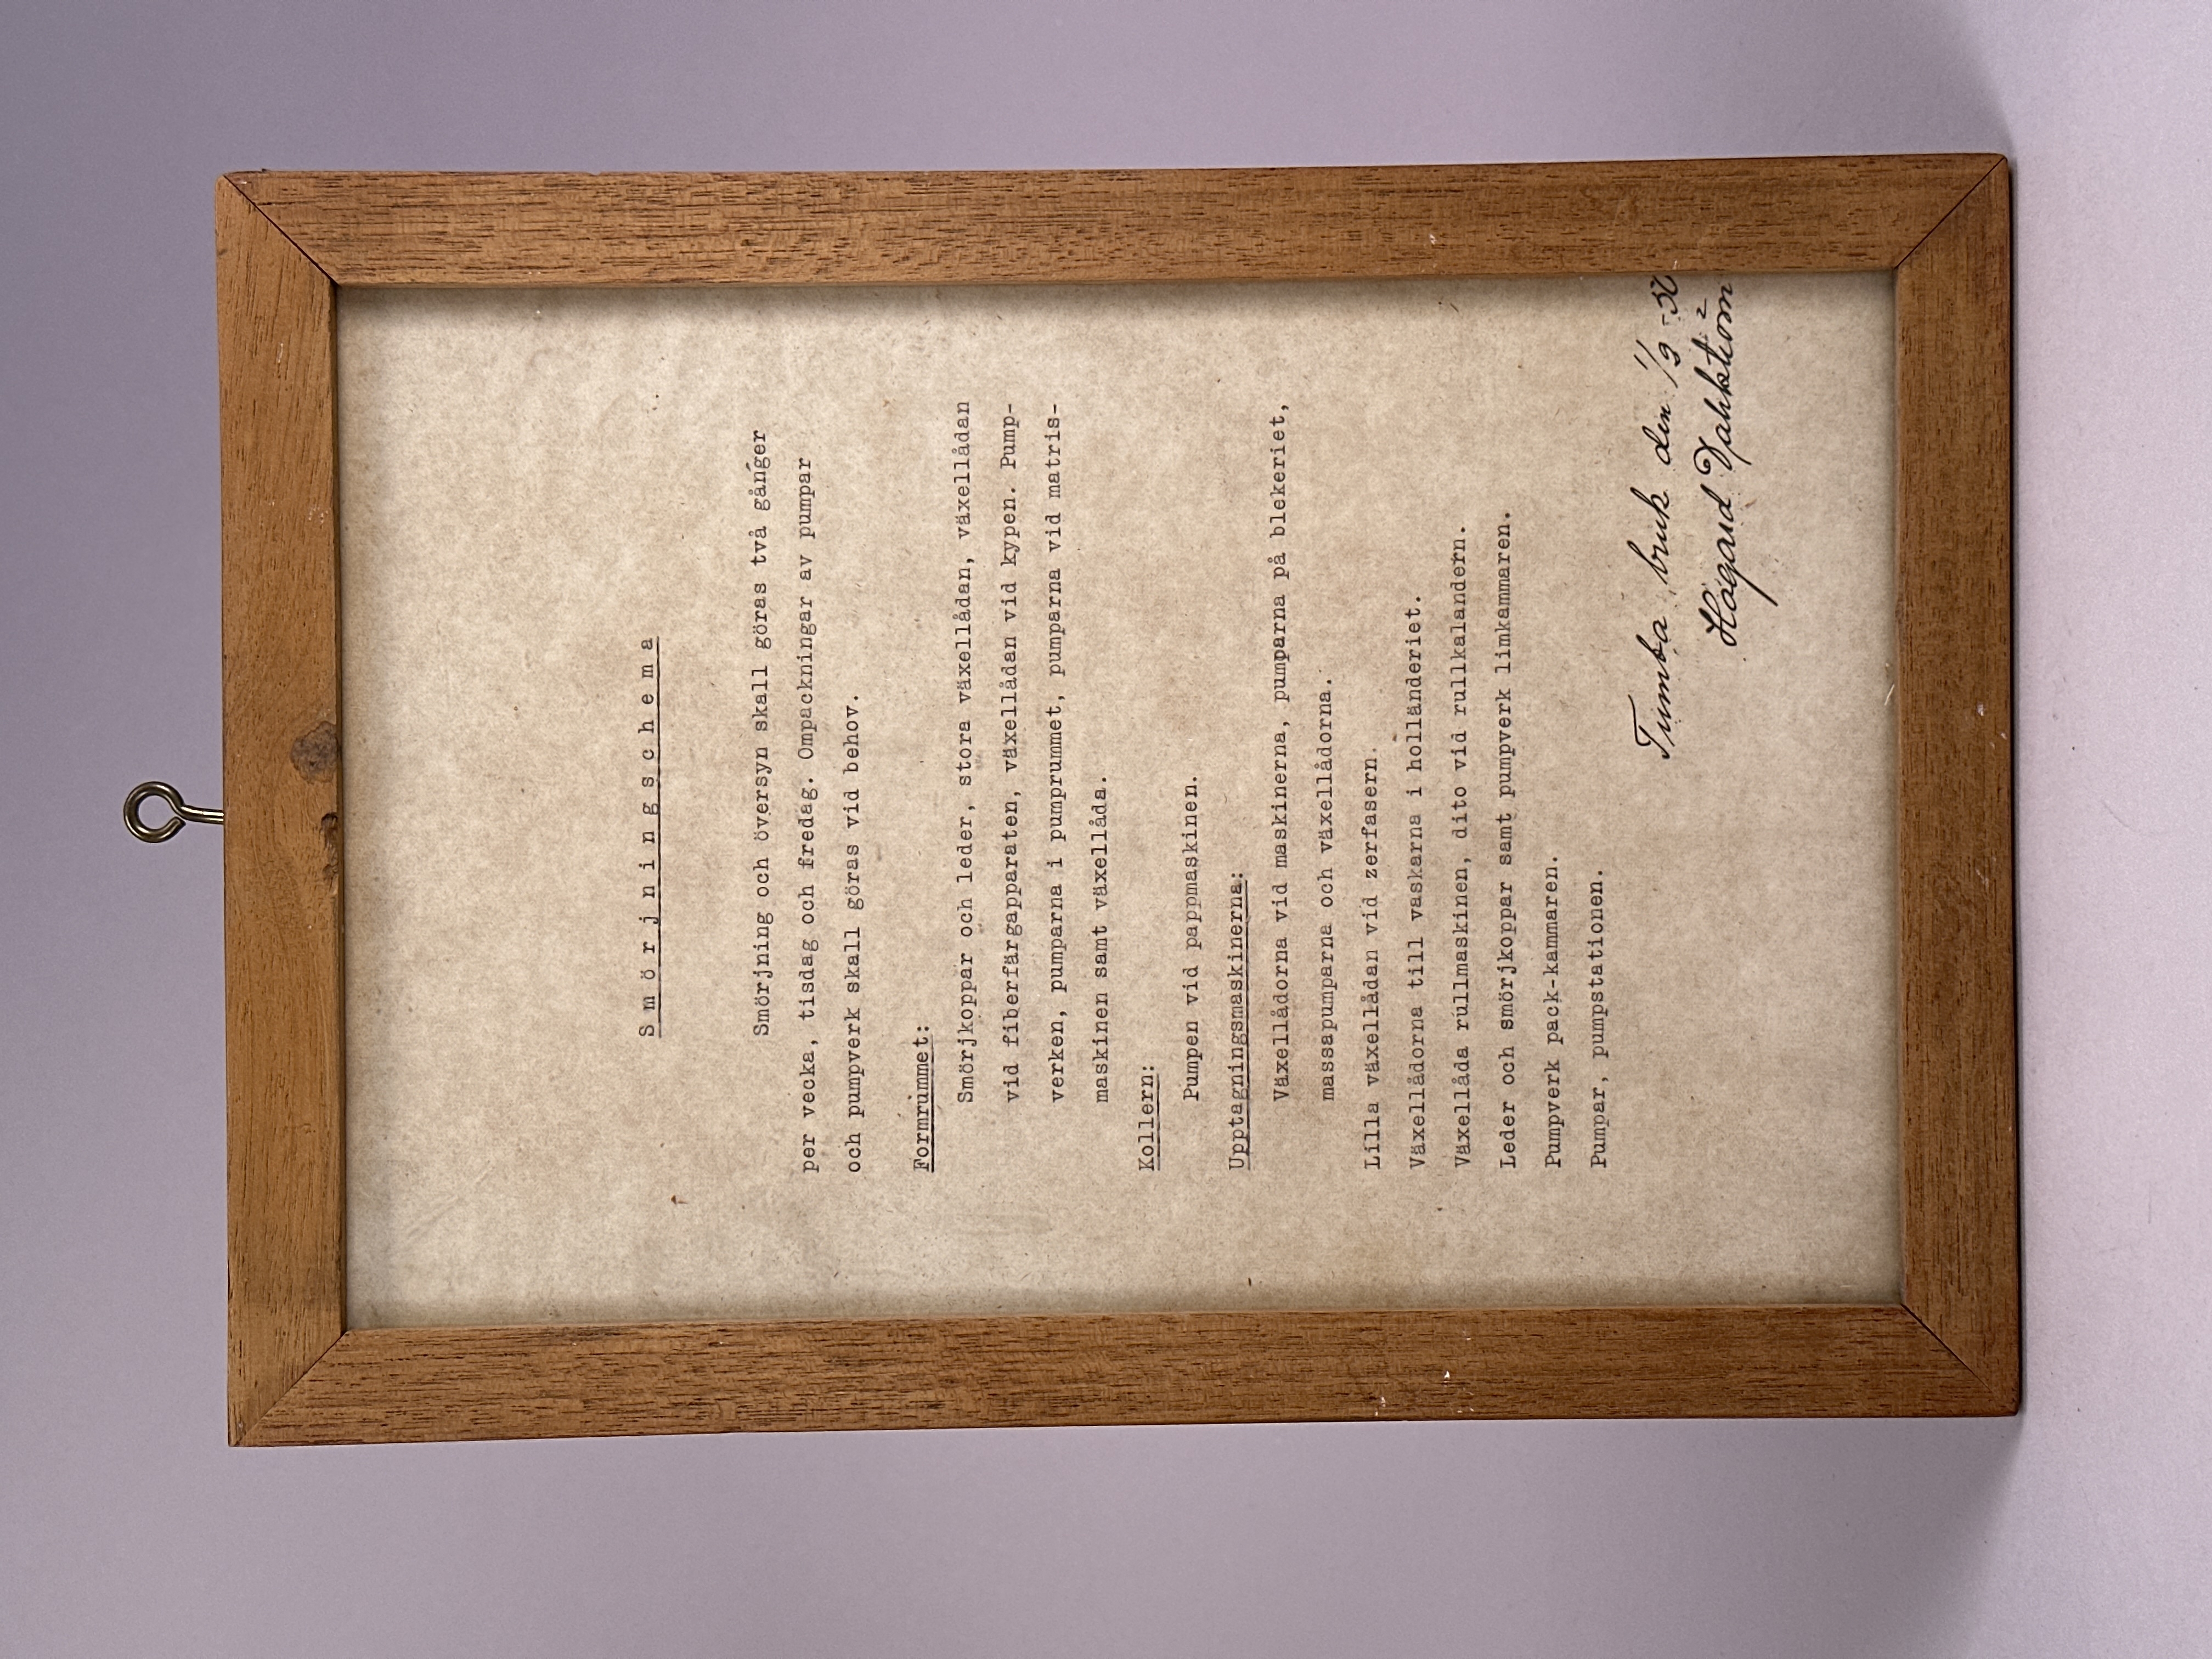 Smörjningschema
Smörjning och översyn skall göras två gånger
per vecka, tisdag och fredag. Ompackningar av pumpar
och pumpverk skall göras vid behov.
Formrummet:
Smörjkoppar och leder, stora växellådan, växellådan
vid fiberfärgapparaten, växellådan vid kypen. Pump-
verken, pumparna i pumprummet, pumparna vid matris-
maskinen samt växellåda.
Kollern:
Pumpen vid pappmaskinen.
Upptagningsmaskinerna:
Växellådorna vid maskinerna, pumparna på blekeriet,
massapumparna och växellådorna.
Lilla växellådan vid zerfasern.
Växellådorna till vaskarna i holländeriet.
Växellåda rullmaskinen, dito vid rullkalandern.
Leder och smörjkoppar samt pumpverk limkammaren.
Pumpverk pack-kammaren.
Pumpar, pumpstationen.
Tumba bruk den